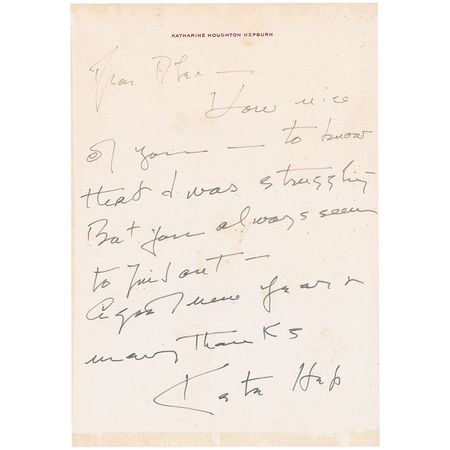 KATHARINE HOUGHTON HEPBURN
Dear
How nice
of you — to know
that I was struggling
But you always seem
to find out —
A good New Year &
many thanks
Kate Hep